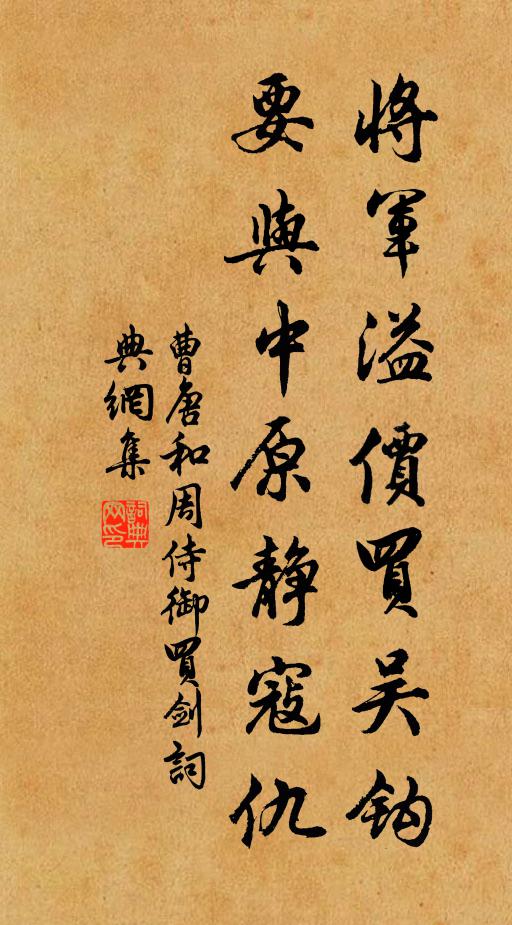 將軍溢價買吴鈎
要與中原静寇仇
曹唐和周侍御買剑詞
典網集
詞典网印